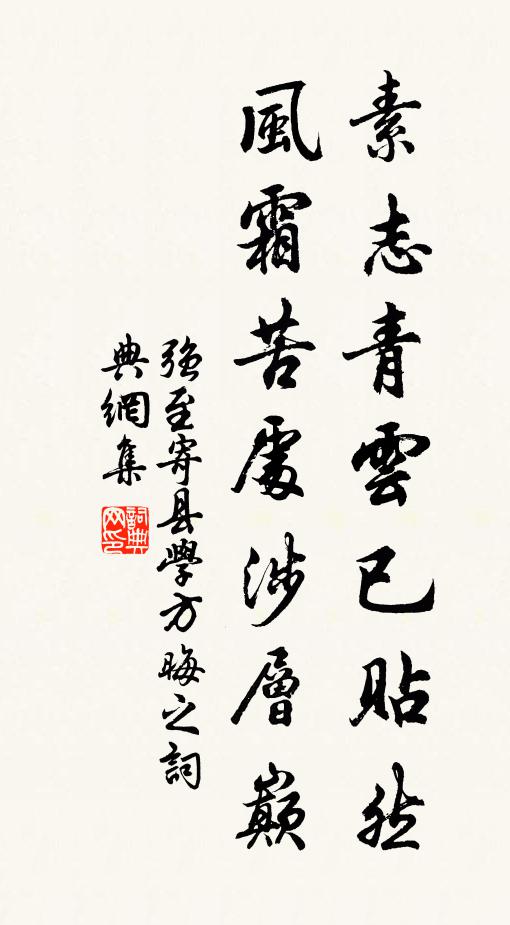 素志青雲已貼然
風霜苦處涉層巔
強至寄县學方晦之詞
典網集
詞典網印